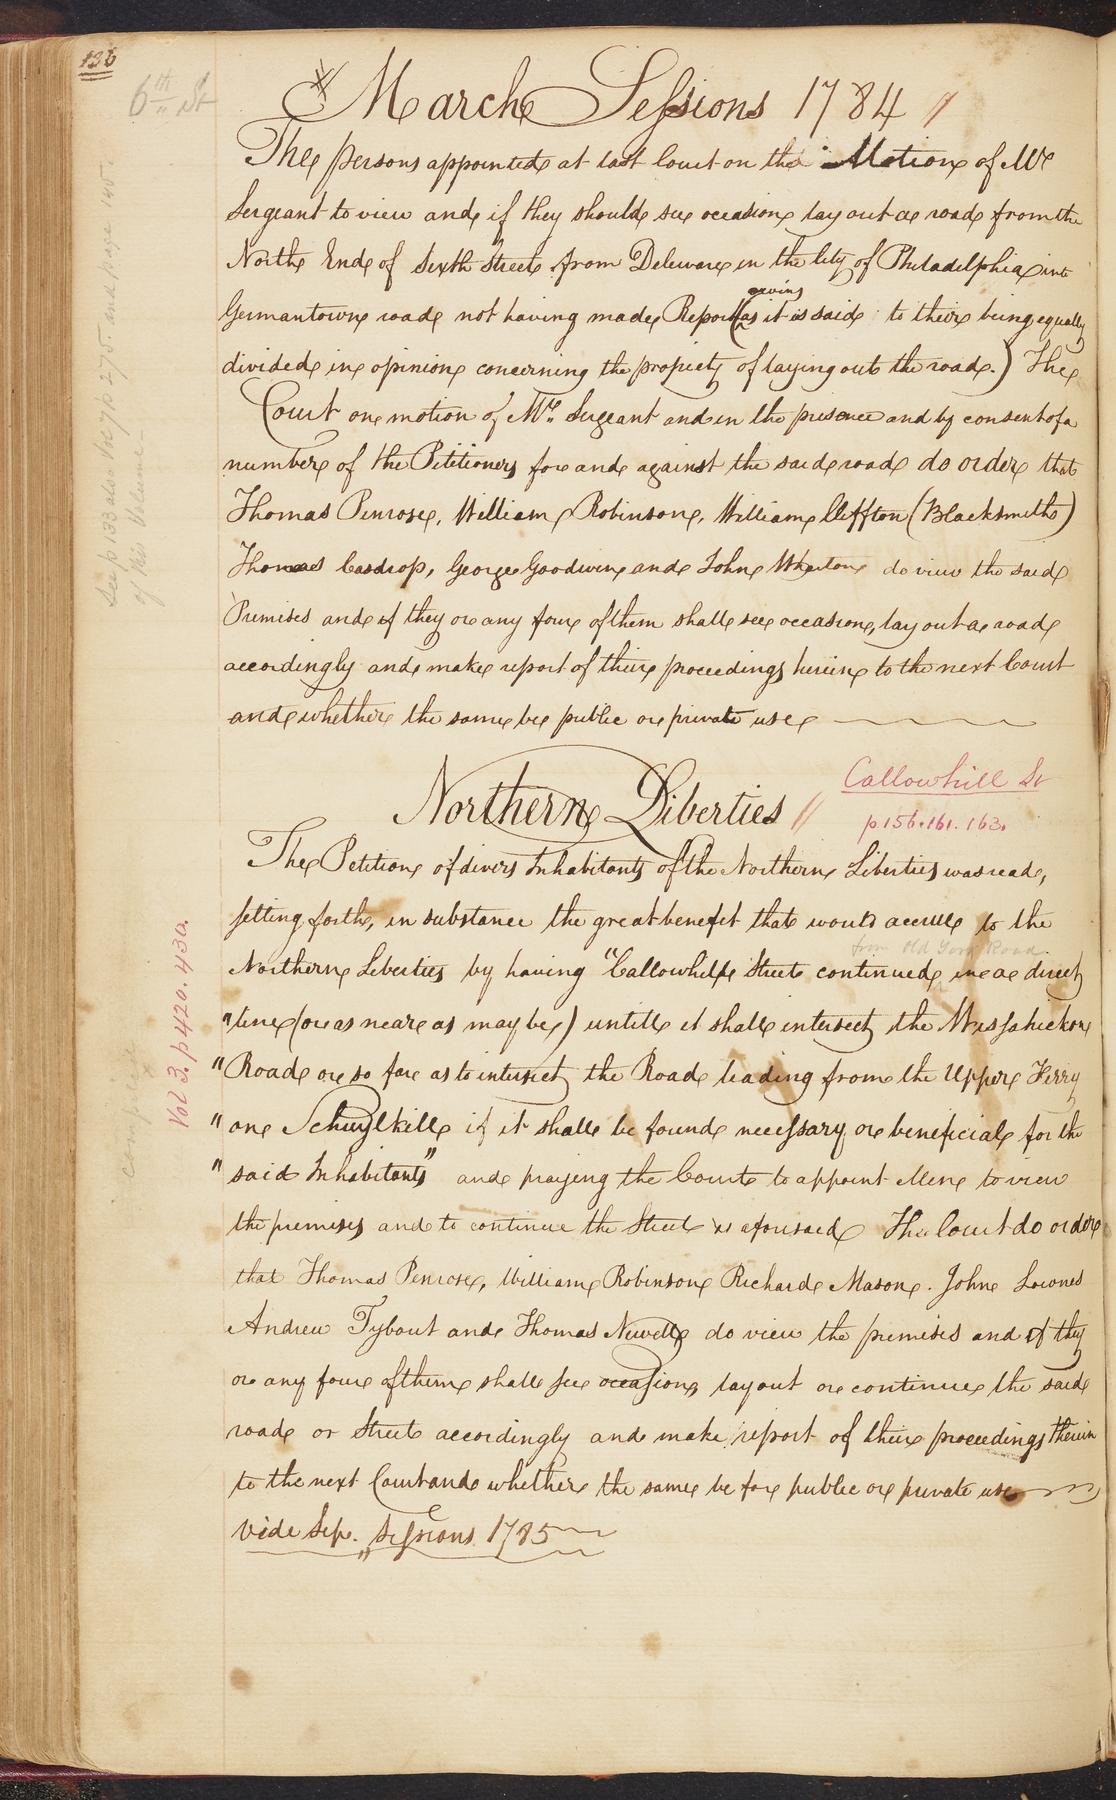 136
6th St
March Sessions 1784
The persons appointed at last Court on the Motion of Mr
Sergeant to view and if they should see occasion lay out a road from the
North End of Sixth Street from Deleware in the City of Philadelphia into
owing
Germantown road not having made Report (as it is said to their being equally
divided in opinion concerning the propriety of laying out the road.) The
Court on motion of Mr. Sergeant and in the presence and by consent of a
number of the Petitioners for and against the said road do order that
Thomas Penrose, William Robinson, William Cliffton (Blacksmith)
Thomas Casdrop, George Goodwin and John Wharton do view the said
Premises and if they or any four of them shall see occasion, lay out a road
accordingly and make report of their proceedings herein to the next Court
and whether the same be public or private use
Northern Liberties
Callowhill St
p.156.161.163.
The Petition of divers Inhabitants of the Northern Liberties was read,
setting forth, in substance the great benefit that would accrue to the
from Old York Road
Northern Liberties by having "Callowhill Street continued in a direct
"line (or as near as may be) untill it shall intersect the Wissahickon
"Road or so far as to intersect the Road leading from the Upper Ferry
"on Schuylkill if it shall be found necessary or beneficial for the
"said Inhabitants" and praying the Court to appoint Men to view
the premises and to continue the Street as aforesaid The Court do order
that Thomas Penrose, William Robinson Richard Mason. John Lownes
Andrew Tybout and Thomas Newell do view the premises and if they
or any four of them shall see occasion, lay out or continue the said
road or Street accordingly and make report of their proceedings therein
to the next Court and whether the same be for public or private use
Vide Sep. Sessions 1785
See p 133 also Vol p 275 and page 145
of this Volume
Vol 3. p 420. 430.